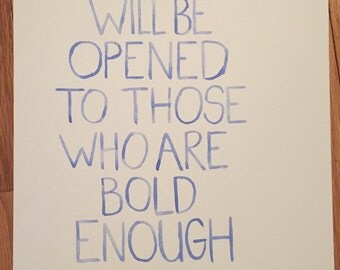 WILL BE
OPENED
TO THOSE
WHO ARE
BOLD
ENOUGH